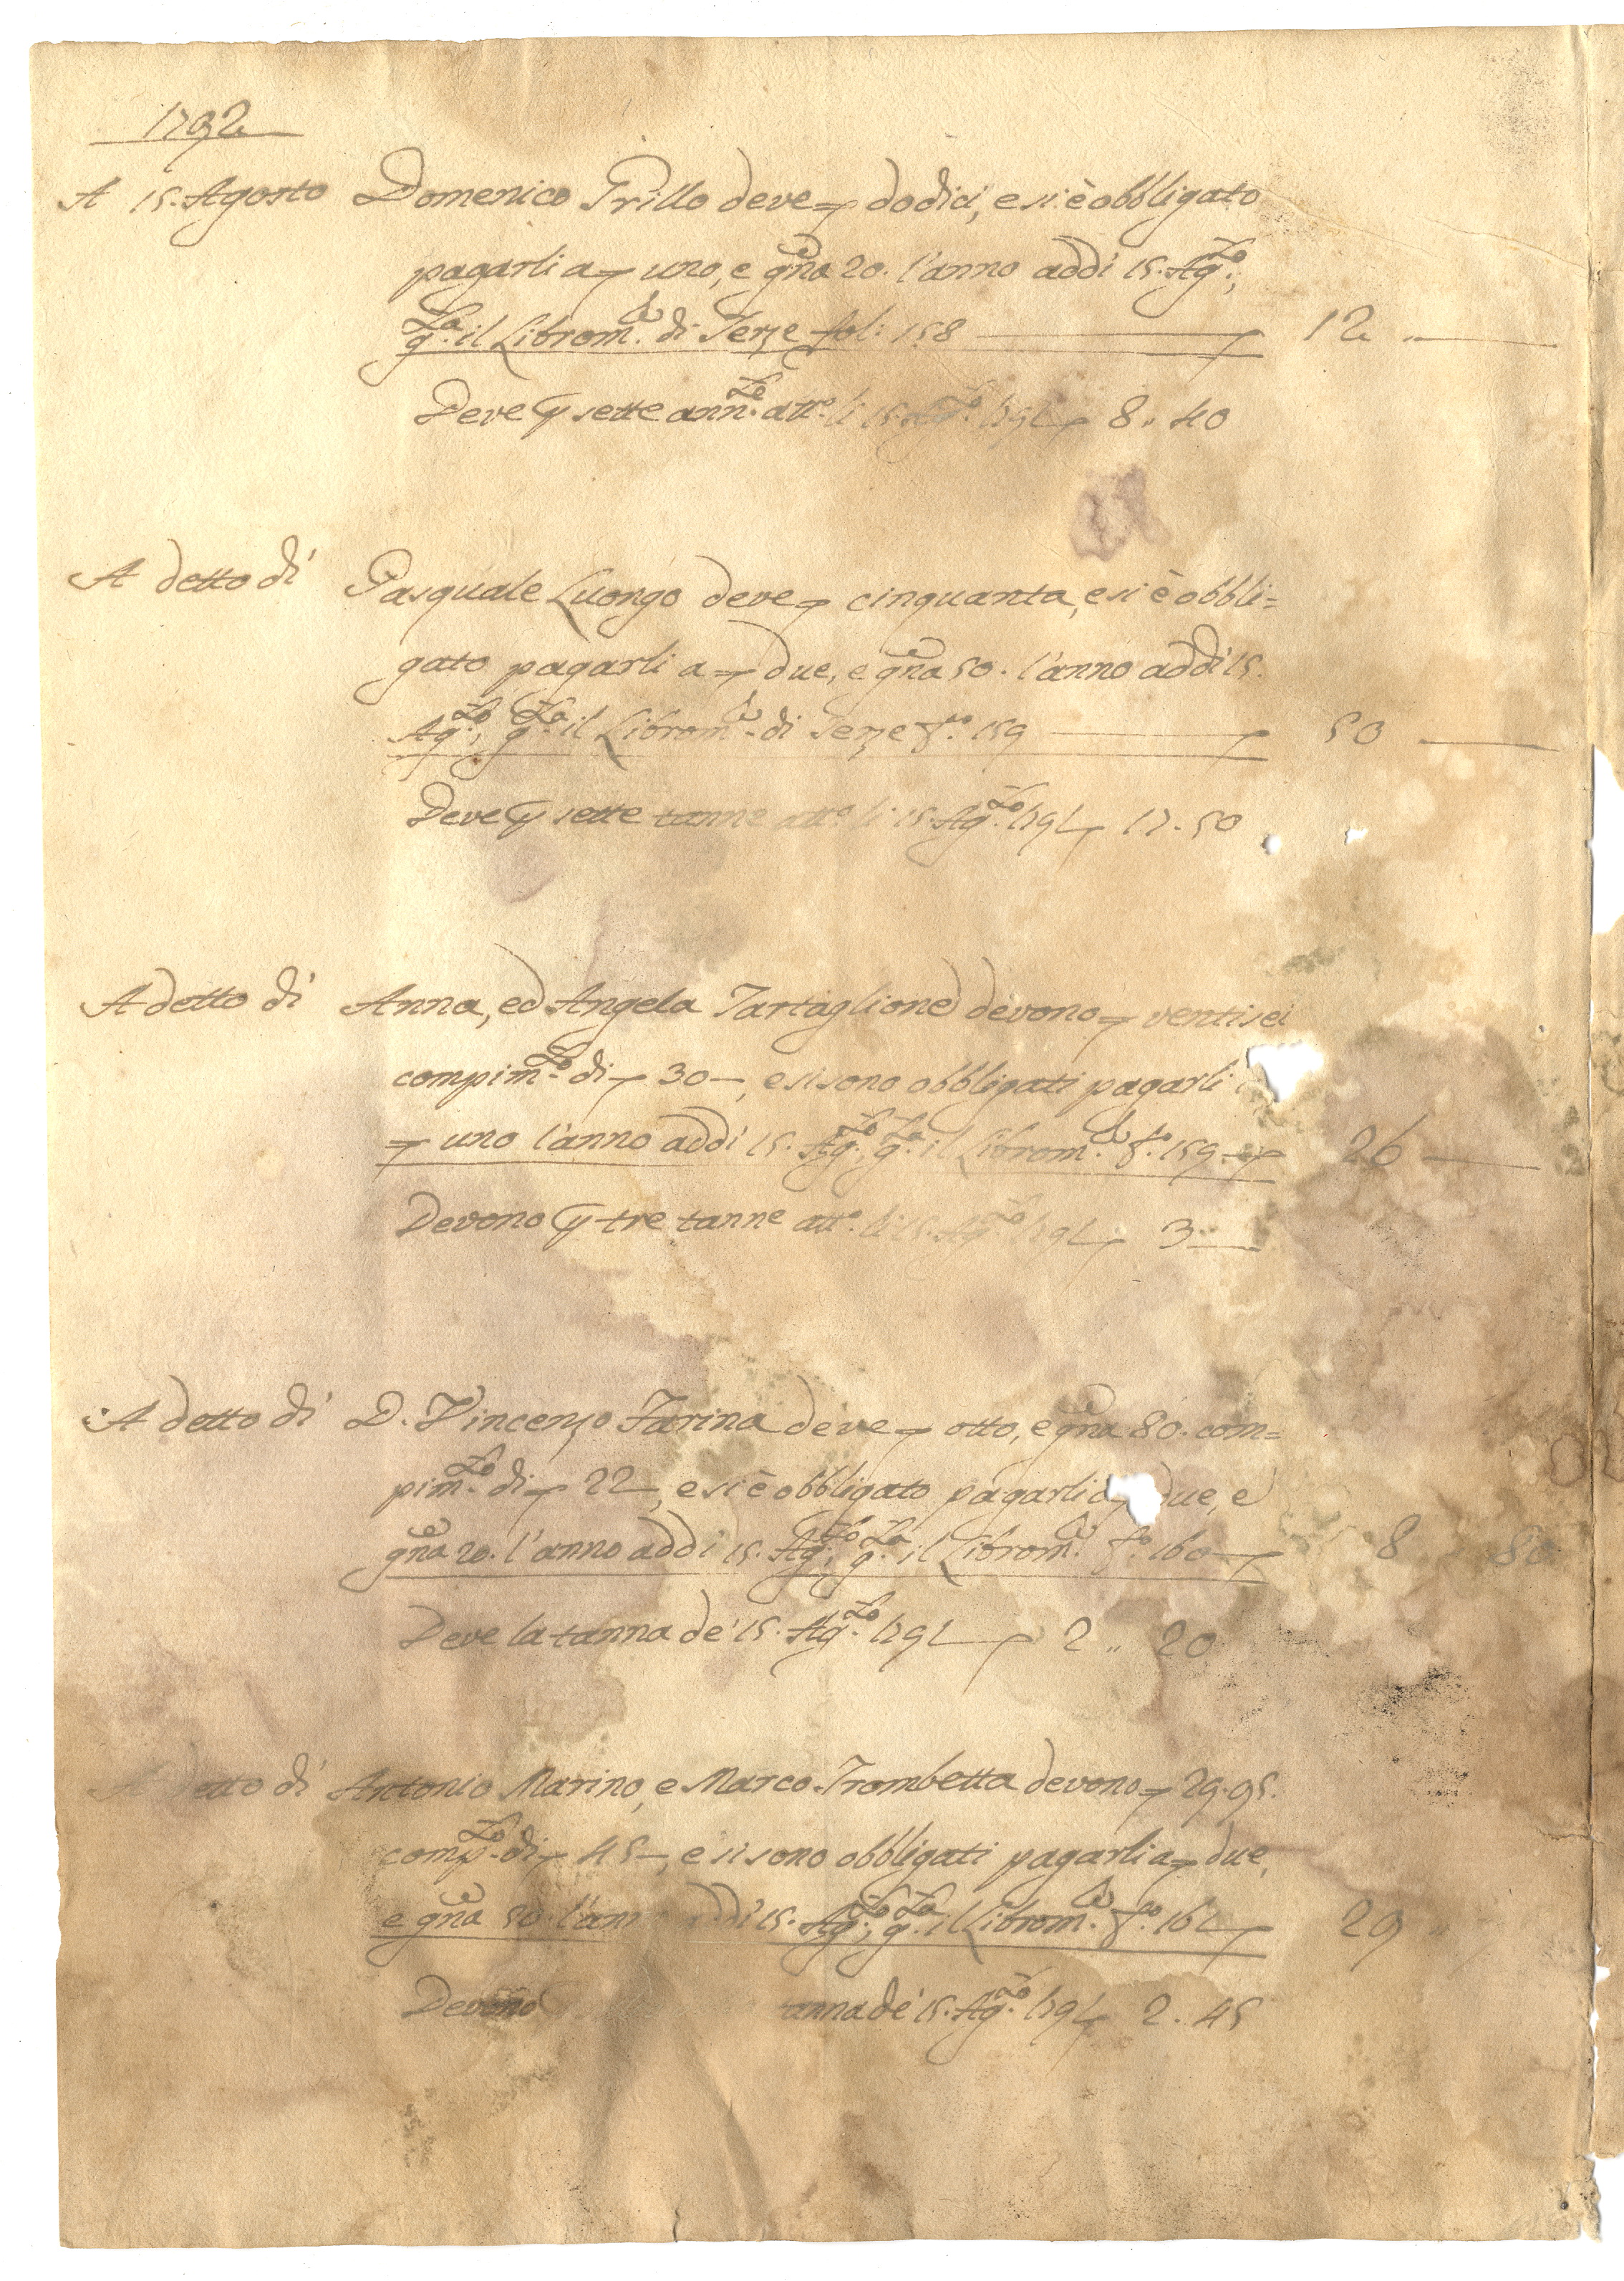 1792
A 15. Agosto Domenico Prillo deve dodici, e si è obbligato
pagarli a uno, e gna 20. l'anno addi 15. Ag.to,
q.ta il Librom.e di Terze fol: 158 12 . —
Deve p sette ann.te att.o li 15. Ag.to 1791 8. 40
A detto dì Pasquale Luongo deve cinquanta, e si è obbli=
gato pagarli a due, e gna 50. l'anno addi 15.
Ag.to, q.ta il Librom.e di Terze f.o 159 50 —
Deve p sette tanne att.o li 15. Ag.to 1791 17. 50
A detto dì Anna, ed Angela Tartaglione devono ventisei
compim.to di 30 —, e si sono obbligati pagarli
uno l'anno addi 15. Ag.to, q.ta il Librom.e f.o 159 26 —
Devono p tre tanne att.o li 15. Ag.to 1791 3 —
A detto dì D. Vincenzo Farina deve otto, e gna 80. com=
pim.to di 22 —, e si è obbligato pagarli a due, e
gna 20. l'anno addi 15. Ag.to, q.ta il Librom.e f.o 160 8 80
Deve la tanna de' 15. Ag.to 1791 2 ,, 20
A detto dì Antonio Marino, e Marco Trombetta devono 29. 95.
comp.to di 45 —, e si sono obbligati pagarli a due,
e gna 50. l'anno addi 15. Ag.to, q.ta il Librom.e f.o 161 29
Devono tanna de' 15. Ag.to 1791 2. 45